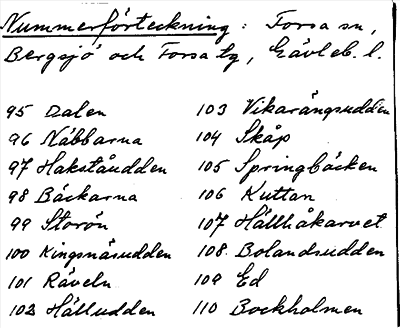 Nummerförteckning: Forsa sn,
Bergsjö och Forsa tg, Gävleb. l.
95 Dalen
96 Nabbarna
97 Hakståudden
98 Bäckarna
99 Storön
100 Kingsnäsudden
101 Räveln
102 Hålludden
103 Vikarängsudden
104 Skåp
105 Springbäcken
106 Kuttan
107 Hällhåkarvet
108. Bolandsudden
109 Ed
110 Bockholmen